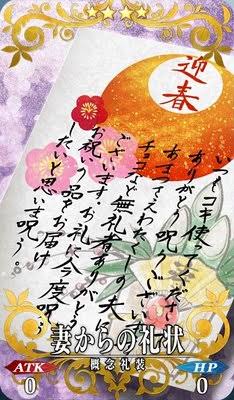 迎春
いつもコキ使てくださ
ありがとう呪うございま
わたくしの夫
チョコなど無礼者ありがとう
ございます。お礼に今度呪う
お祝う品をお届け
したいと思いま呪う。
妻からの礼状
概念礼装
ATK
0
HP
0